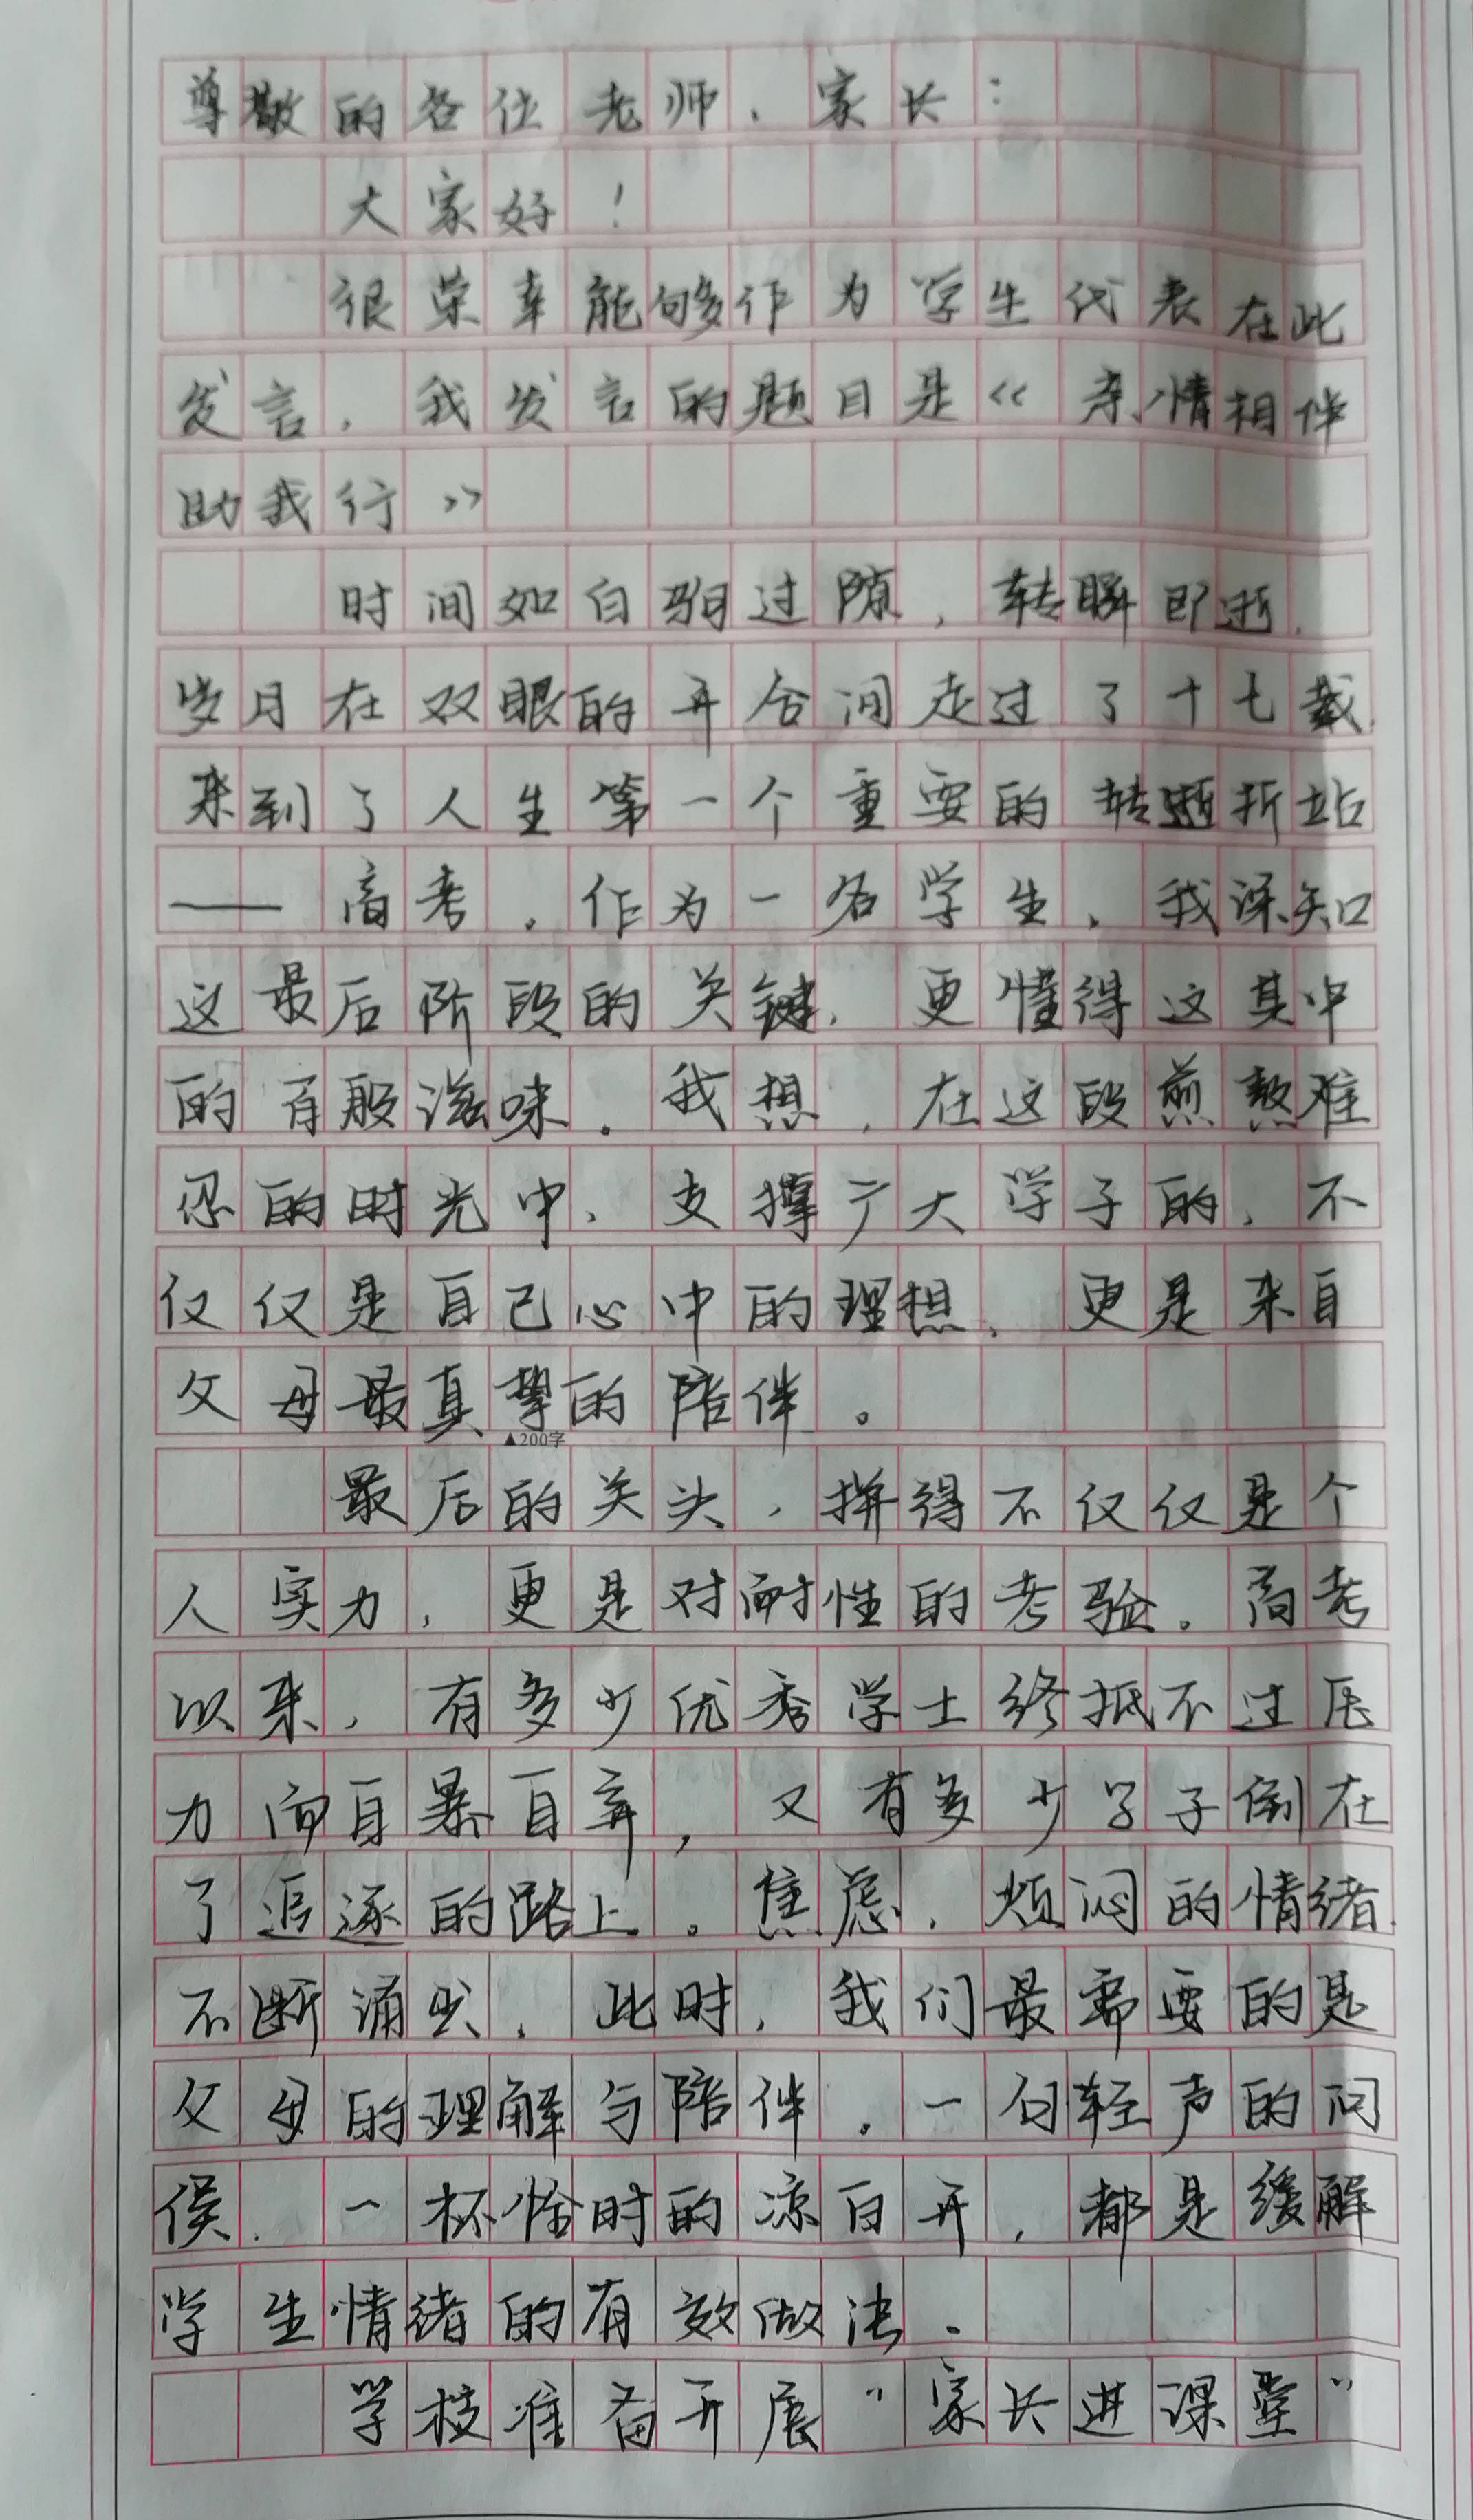 尊敬的各位老师、家长：
大家好！
很荣幸能够作为学生代表在此
发言，我发言的题目是《亲情相伴
助我行》
时间如白驹过隙，转瞬即逝，
岁月在双眼的开合间走过了十七载，
来到了人生第一个重要的转折站
——高考。作为一名学生，我深知
这最后阶段的关键，更懂得这其中
的百般滋味。我想，在这段煎熬难
忍的时光中，支撑广大学子的，不
仅仅是自己心中的理想，更是来自
父母最真挚的陪伴。
▲200字
最后的关头，拼得不仅仅是个
人实力，更是对耐性的考验。高考
以来，有多少优秀学士终抵不过压
力而自暴自弃，又有多少学子倒在
了追逐的路上。焦虑，烦闷的情绪
不断涌出，此时，我们最需要的是
父母的理解与陪伴。一句轻声的问
候，一杯恰时的凉白开，都是缓解
学生情绪的有效做法。
学校准备开展“家长进课堂”